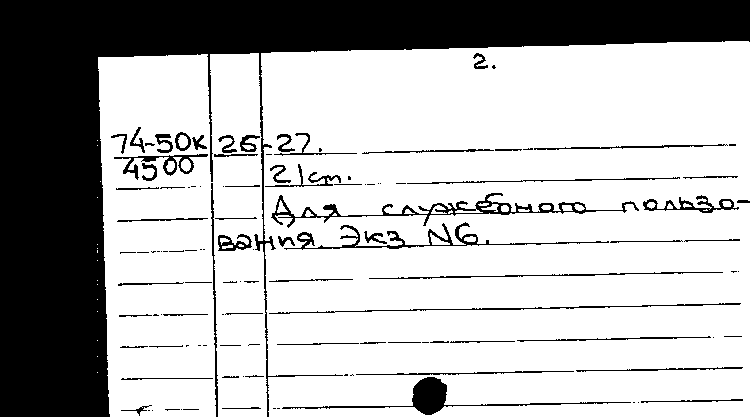 2.
74-50к 26-27.
4500
21ст.
Для служебного пользо-
вания. Экз N6.